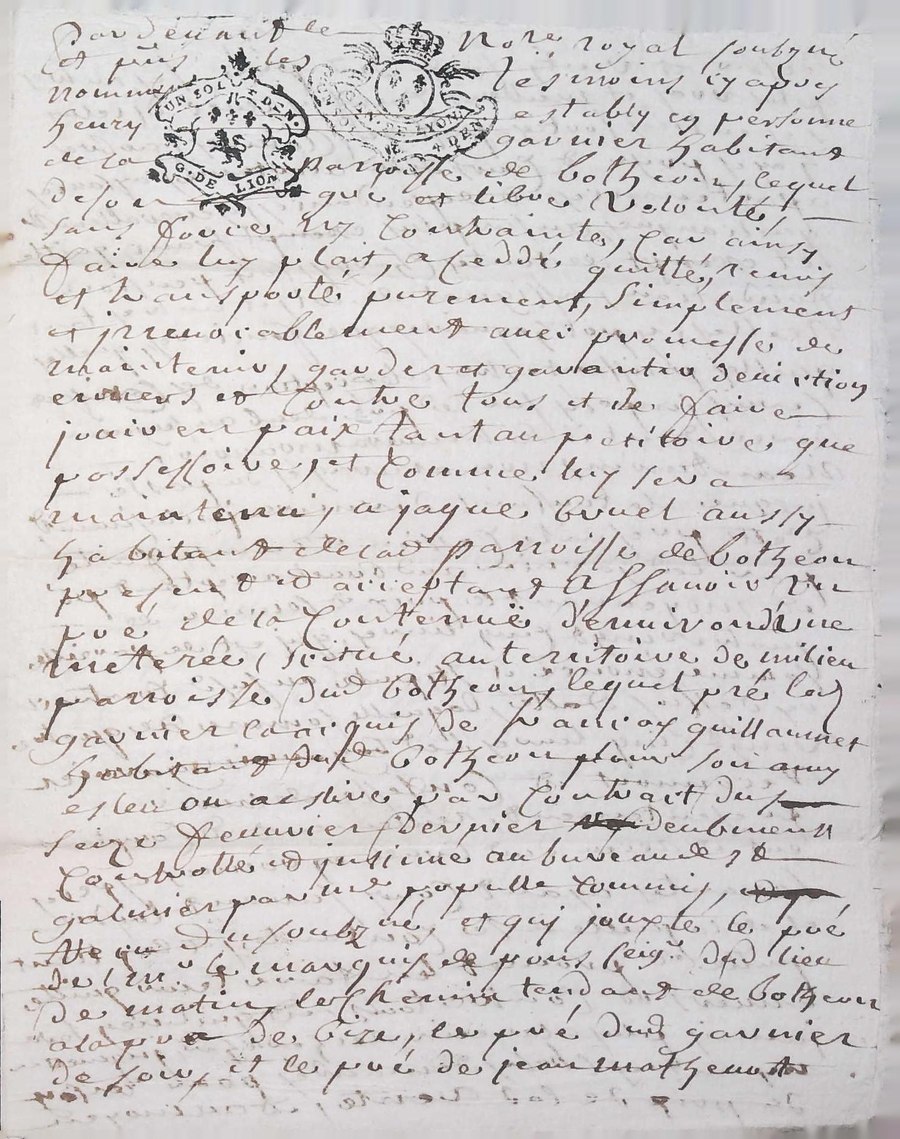 Pardevant le notre royal soubzné
et pñs les tesmoins cy apres
nommés estably en personne
henry garnier habitant
de la parroisse de bothéon, lequel
de son gré et libre volonté,
sans force ny contrainte, car ainsy
faire luy plait, a ceddé quitté, remis
et transporté purement, simplement
et irrevocablement avec promesse de
maintenir, garder et garantir deviction
envers et contre tous et de faire
jouir en paix tant au petitoire que
possessoire, et comme luy sera
maintenu, a jaque bruel aussy
habitant de lad parroisse de botheon
present et acceptant assavoir un
pré de la contenuë denviron dune
meterée, scitué au territoire de milieu
parroisse dud botheon, lequel pré led
garnier la acquis de francois guillaumet
habitant dud botheon pour son amy
esleu ou a eslire par contrait du
seize feuvrier dernier deubment
controllé et insinué au bureau de st
galmier par me populle commis,
reçu du soubzné, et qui jouxte le pré
de mr le marquis de pons seigr dud lieu
de matin, le chemin tendant de botheon
a la pra de bize, le pré dud garnier
de soir, et le pré de jean mathevot
UN SOL 4 DEN.
G. DE LION
LYON
4 DEN